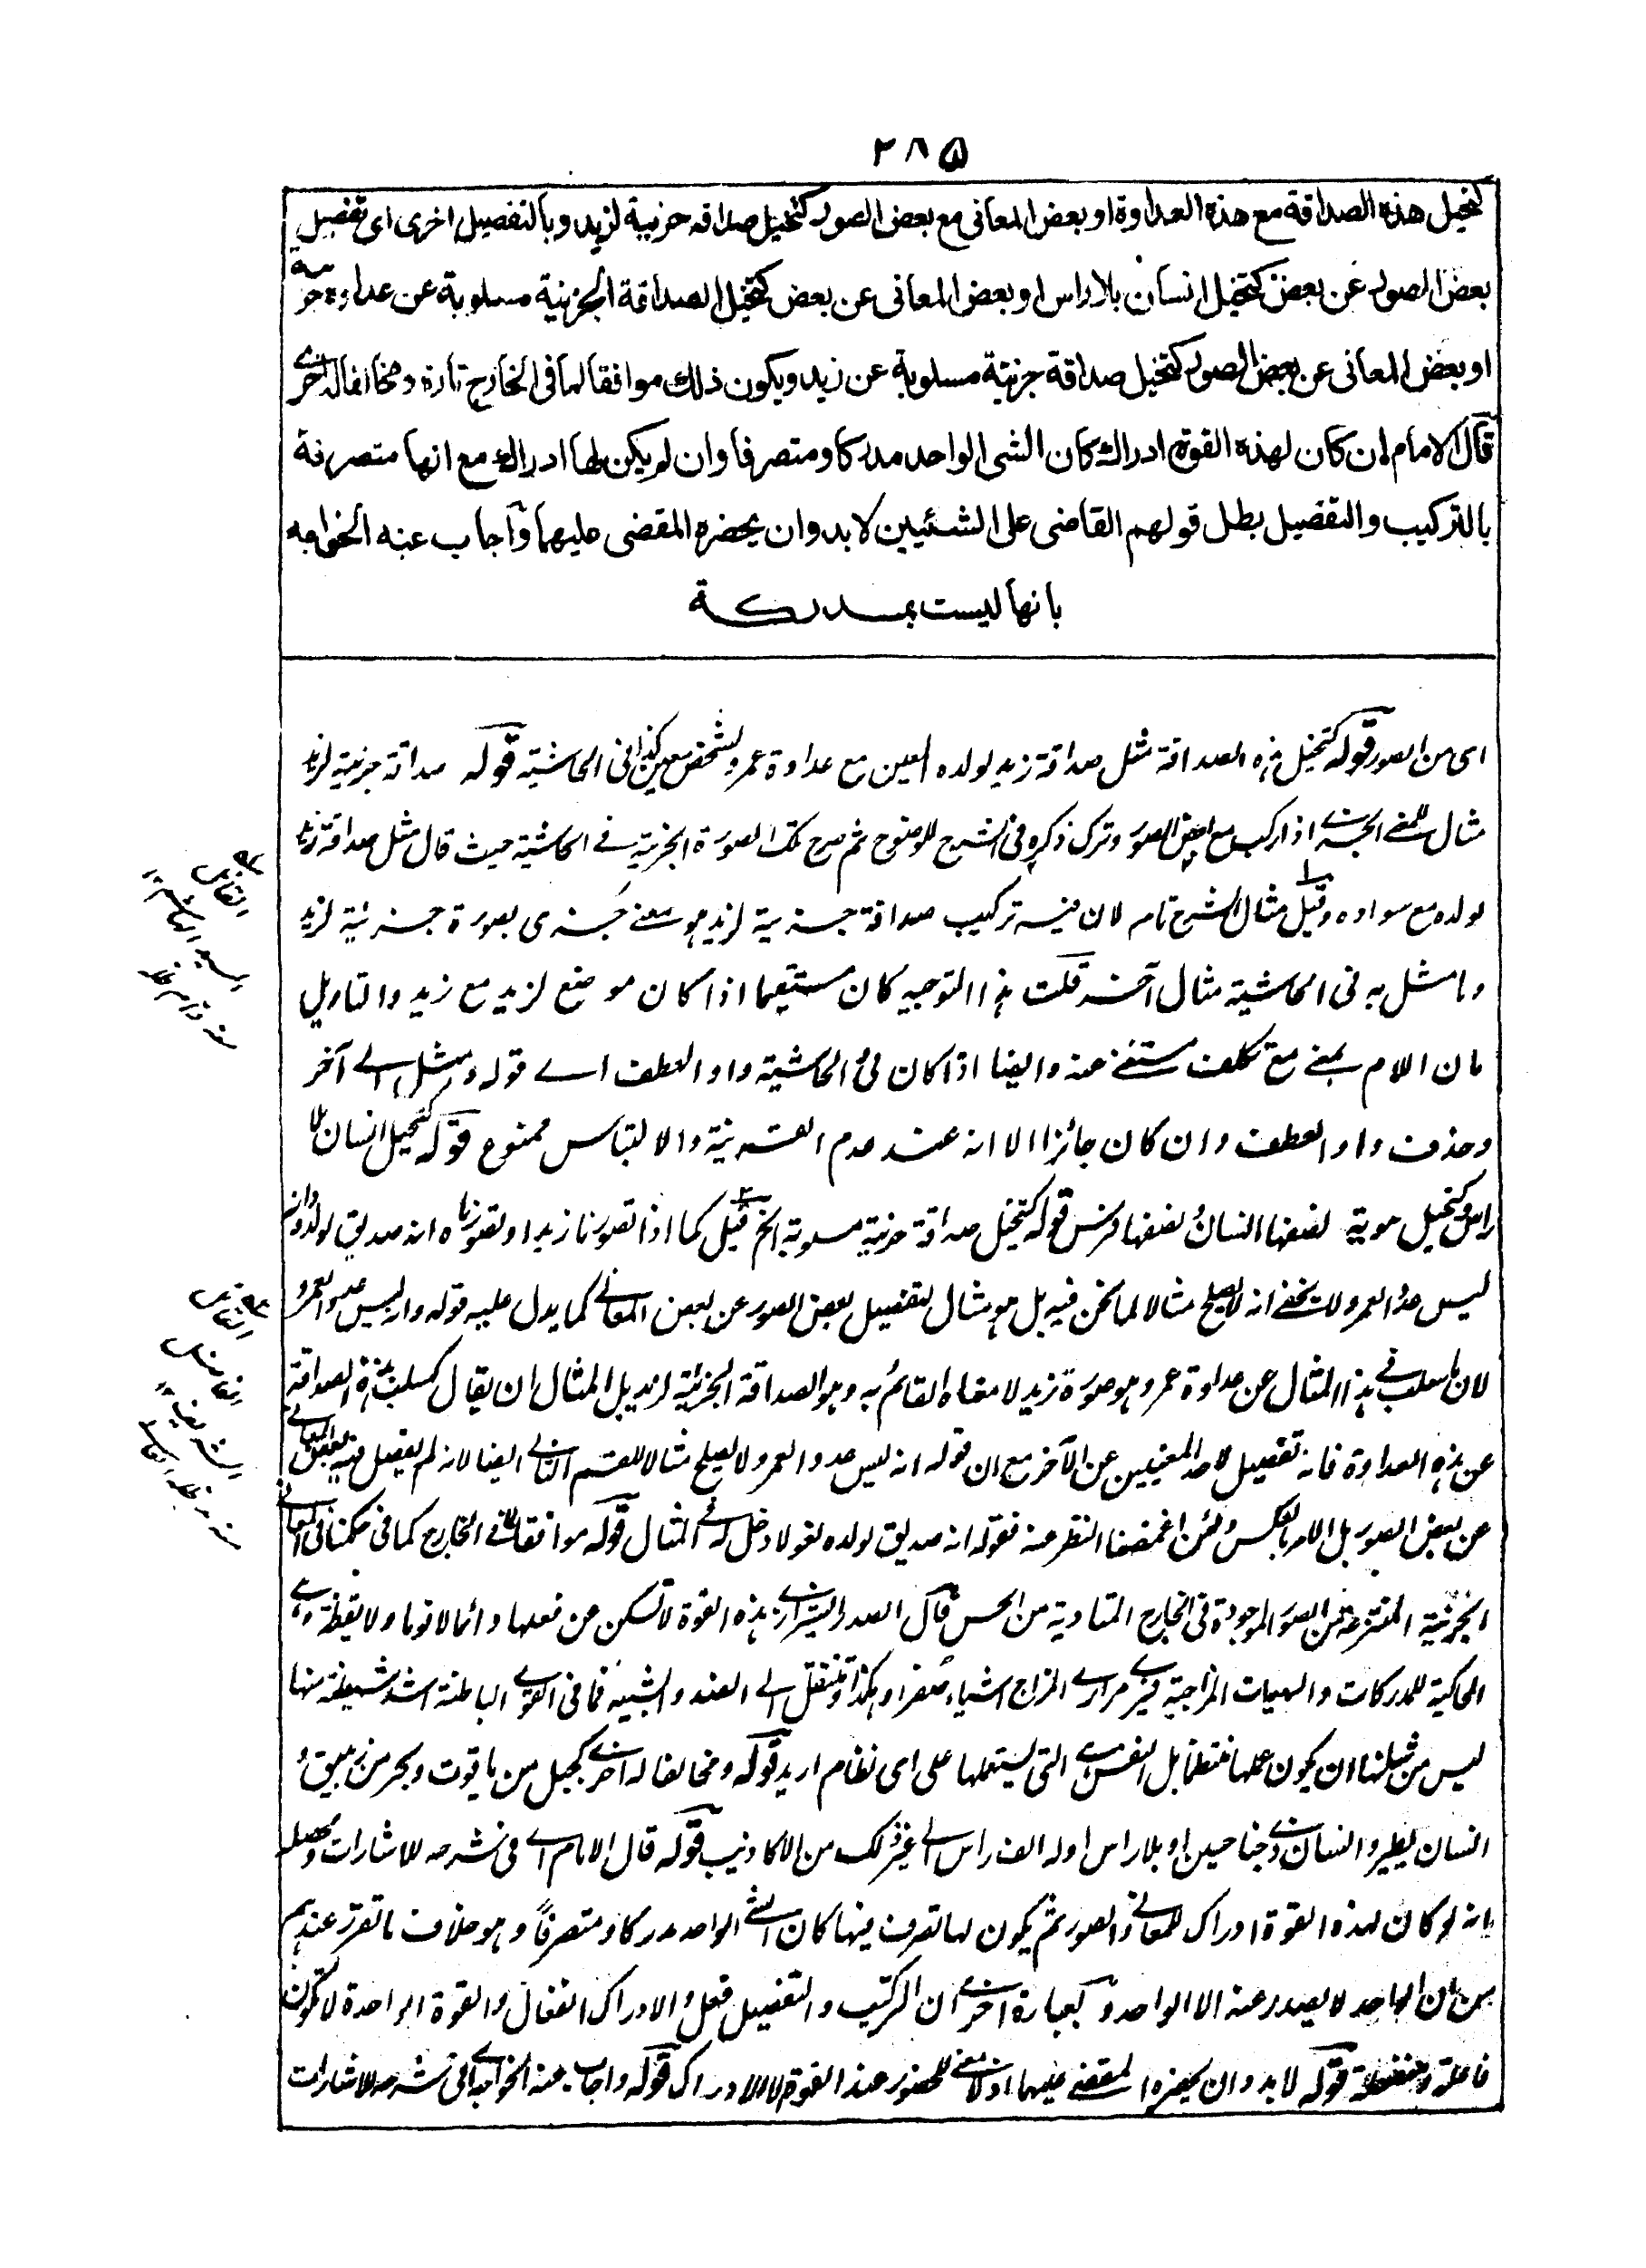 ٢٨٥
كتخيل هذه الصداقة مع هذه العداوة او بعض المعانى مع بعض الصور كتخيل صداقة جزئية لزيد وبالتفصيل اخرى اى تفصيل
بعض الصور عن بعض كتخيل انسان بلا راس او بعض المعانى عن بعض كتخيل الصداقة الجزئية مسلوبة عن عداوة جزئية
او بعض المعانى عن بعض الصور كتخيل صداقة جزئية مسلوبة عن زيد ويكون ذلك موافقا لما فى الخارج تارة ومخالفا له اخرى
قال الامام ان كان لهذه القوة ادراك كان الشى الواحد مدركا ومتصرفا وان لم يكن لها ادراك مع انها متصرفة
بالتركيب والتفصيل بطل قولهم القاضى على الشئيين لابد وان يحضره المقضى عليهما وآجاب عنه الخواجه
بانها ليست بمدركة
اى من الصور قوله كتخيل هذه الصداقة مثل صداقة زيد لولده المعين مع عداوة عمرو لشخص معين كذا فى الحاشية قوله صداقة جزئية لزيد
مثال للمعنے الجزئے اذا ركب مع بعض الصور وترك ذكره فى الشرح للوضوح ثم صرح تلك الصورة الجزئية فے الحاشية حيث قال مثل صداقة زيد
لولده مع سواده وقيل مثال الشرح تام لان فيه تركيب صداقة جزئية لزيد هو معنے جزئى بصورة جزئية لزيد
وما مثل به فى الحاشية مثال آخر قلت هذا التوجيه كان مستقيما اذا كان موضع لزيد مع زيد والتاويل
بان اللام بمعنے مع تكلف مستغنے عنه وايضا اذا كان فى الحاشية واو العطف اے قوله ومثل الے آخر
وحذف واو العطف وان كان جائزا الا انه عند عدم القرينة والالتباس ممنوع قوله كتخيل انسان بلا
راس وكتخيل صورة نصفها انسان ونصفها فرس قوله كتخيل صداقة جزئية مسلوبة الخ قيل كما اذا تصورنا زيدا وتصورناه انه صديق لولده وانه
ليس عدوا لعمرو ولا يخفے انه لا يصلح مثالا لما نحن فيه بل هو مثال لتفصيل بعض الصور عن بعض المعانے كما يدل عليه قوله وانه ليس عدوا لعمرو
لان ما سلب فے هذا المثال عن عداوة عمرو هو صورة زيد لا معناه القائم به وهو الصداقة الجزئية لزيد بل المثال ان يقال كسلب هذه الصداقة
عن هذه العداوة فانه تفصيل لاحد المعنيين عن الآخر مع ان قوله انه ليس عدوا لعمرو لا يصلح مثالا للقسم الثانے ايضا لانه لم يفصل فيه بعض المعانے
عن بعض الصور بل الامر بالعكس ولئن اغمضنا النظر عنه فقوله انه صديق لولده لغو لا دخل له فے المثال قوله موافقا لما فے الخارج كما فى حكمنا فى المعانے
الجزئية المنتزعة من الصور الموجودة فى الخارج المتادية من الحس قال الصدر الشيرازے هذه القوة لا تسكن عن فعلها دائما لا نوما ولا يقظة وهے
الحاكية للمدركات والهيئات المزاجية فيرے مرارے المزاج اشياء صفراء وهكذا وتنتقل الے الضد والشبيه فما فى القوے الباطنة اشد شيطنة منها
ليس من شانها ان يكون عملها منتظما بل النفس هے التى تستعملها على اى نظام اريد قوله ومخالفا له اخرے كجبل من ياقوت وبحر من زيبق و
انسان يطير وانسان ذے جناحين او بلا راس اوله الف راس الے غير ذلك من الاكاذيب قوله قال الامام اے فى شرحه للاشارات ومحصله
بانه لو كان لهذه القوة ادراك للمعانے والصور ثم يكون لها تصرف فيها كان الشے الواحد مدركا ومتصرفا وهو خلاف ما تقرر عندهم
من ان الواحد لا يصدر عنه الا الواحد وبعبارة اخرے ان التركيب والتفصيل فعل والادراك انفعال والقوة الواحدة لا تكون
فاعلة ومنفعلة قوله لابد وان يحضره المقضے عليهما اذ لا معنے للحضور عند القوة الا الادراك قوله واجاب عنه الخواجه اے فى شرحه للاشارات